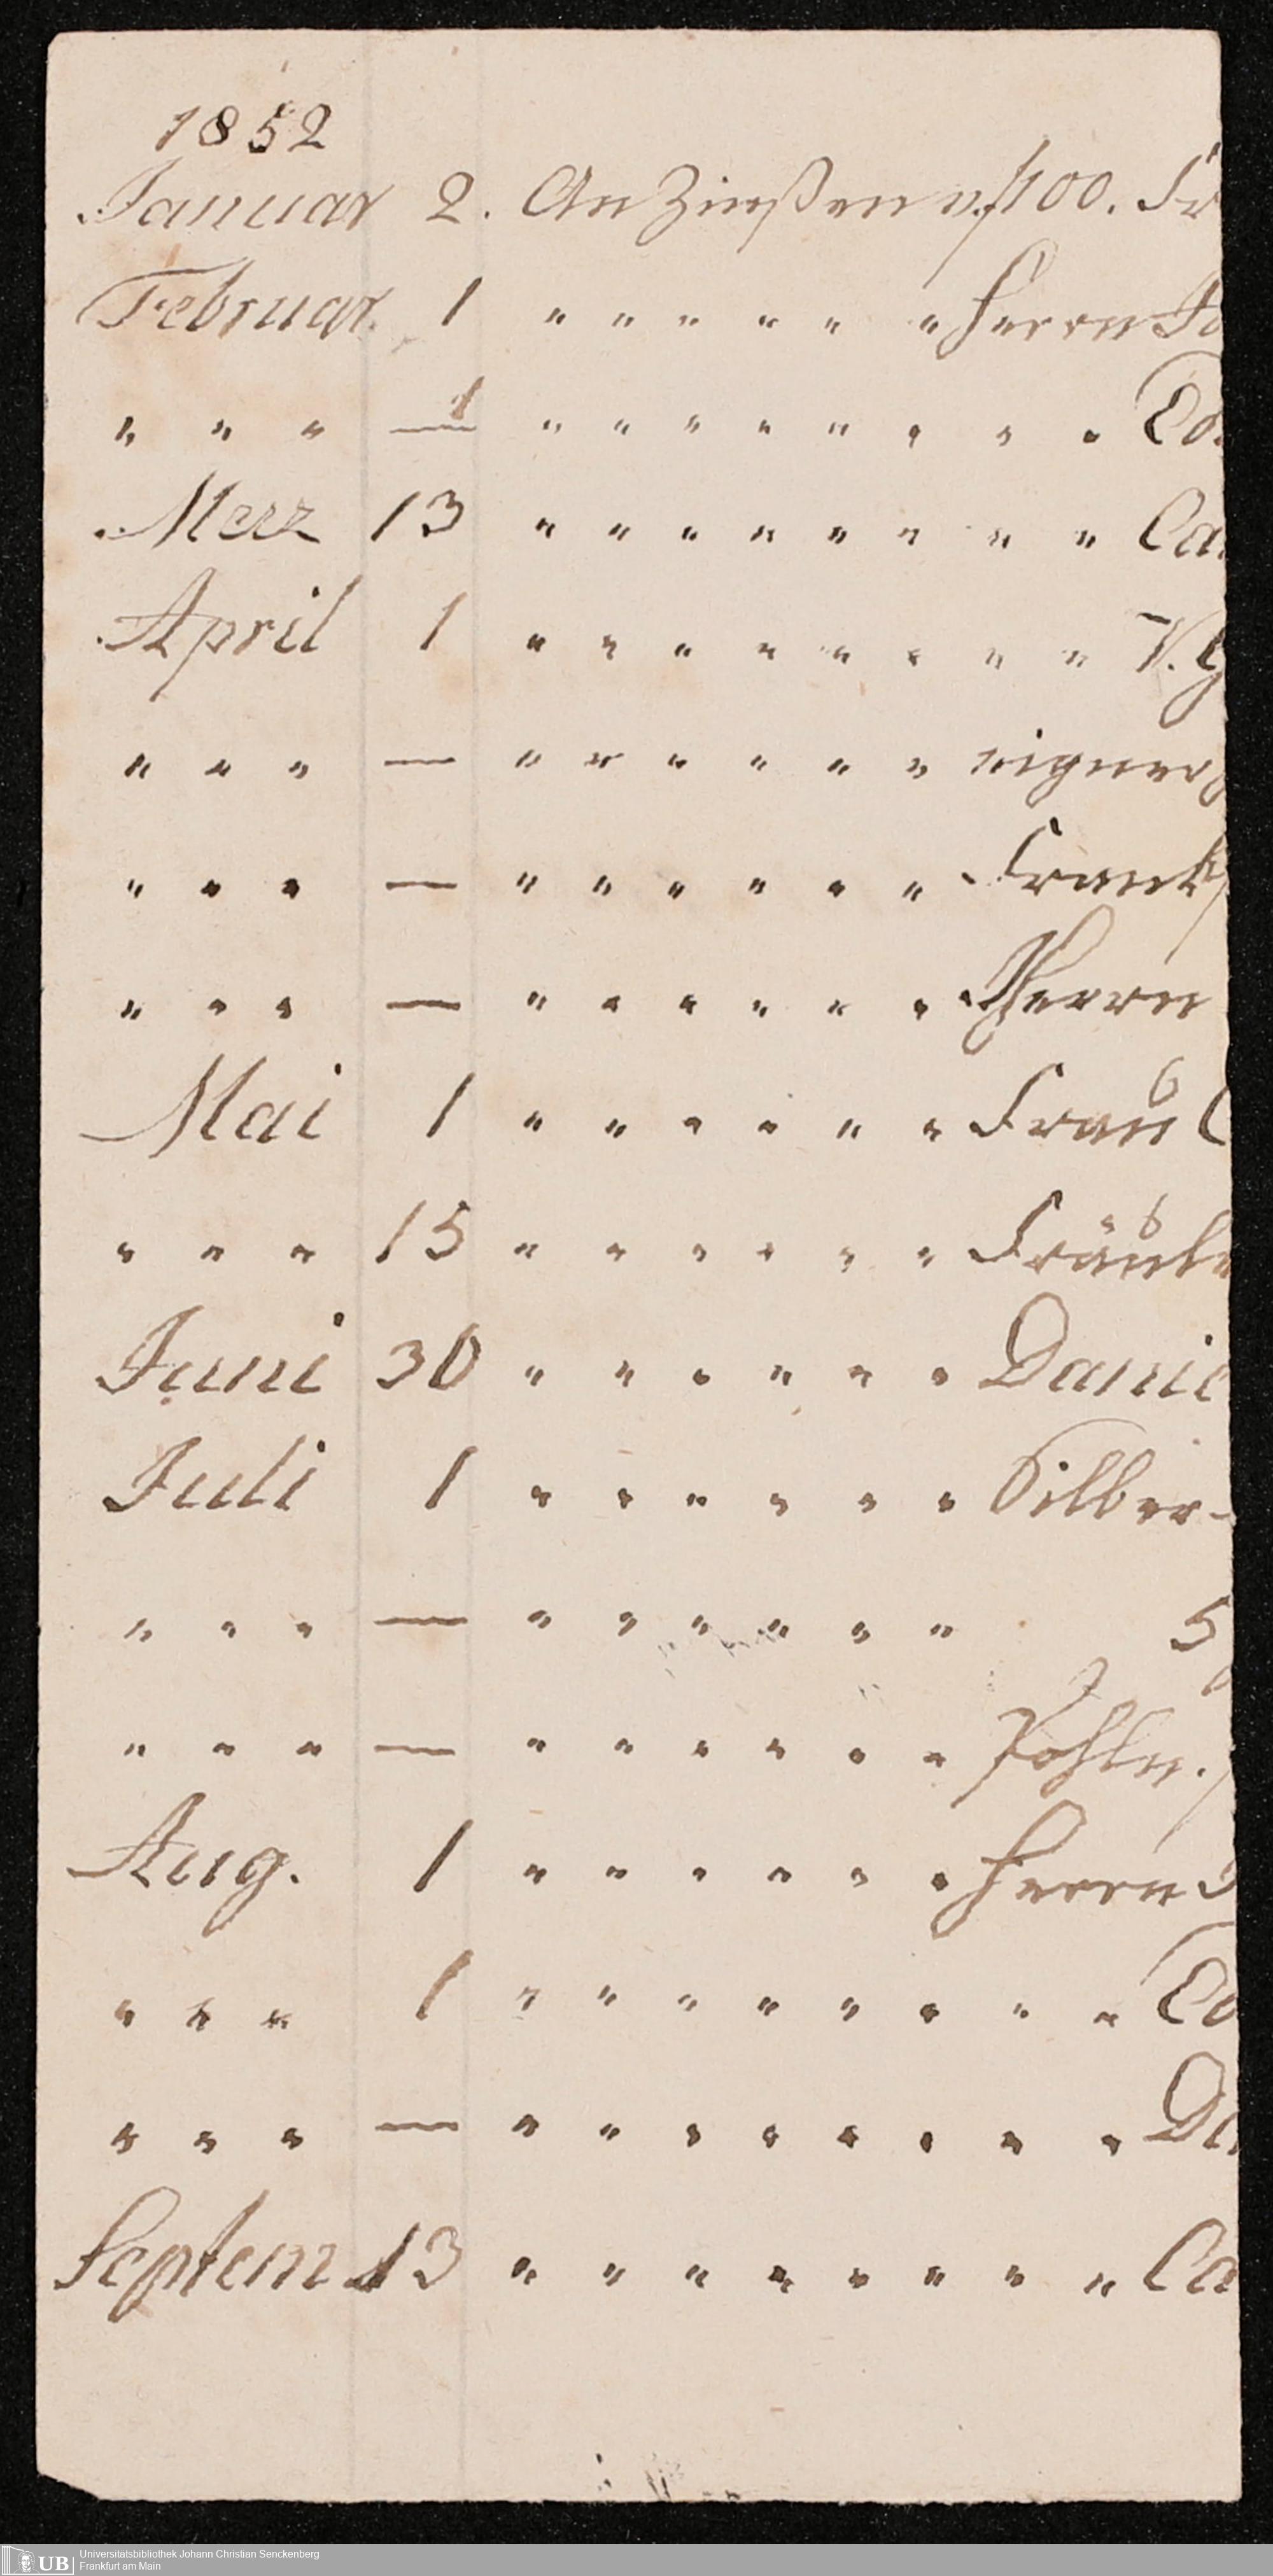 1852
Januar 2. An Zinßen v. f 100. Fr
Februar. 1 " " " " " " Herrn
" " " — 1 " " " " " " " " Ed.
Merz 13 " " " " " " " " Ca
April 1 " " " " " " " " V. G
" " " — " " " " " " eigner
" " " — " " " " " " Frankf
" " " — " " " " " " Herrn
Mai 1 " " " " " " Frau C
" " " 15 " " " " " " Fräule
Juni 30 " " " " " " Danie
Juli 1 " " " " " " Silber-
" " " — " " " " " " 5
" " " — " " " " " " Pohln.
Aug. 1 " " " " " " Herrn
" " " 1 " " " " " " " " Ed
" " " — " " " " " " " " Da
Septem 13 " " " " " " " " Ca
UB
Universitätsbibliothek Johann Christian Senckenberg
Frankfurt am Main